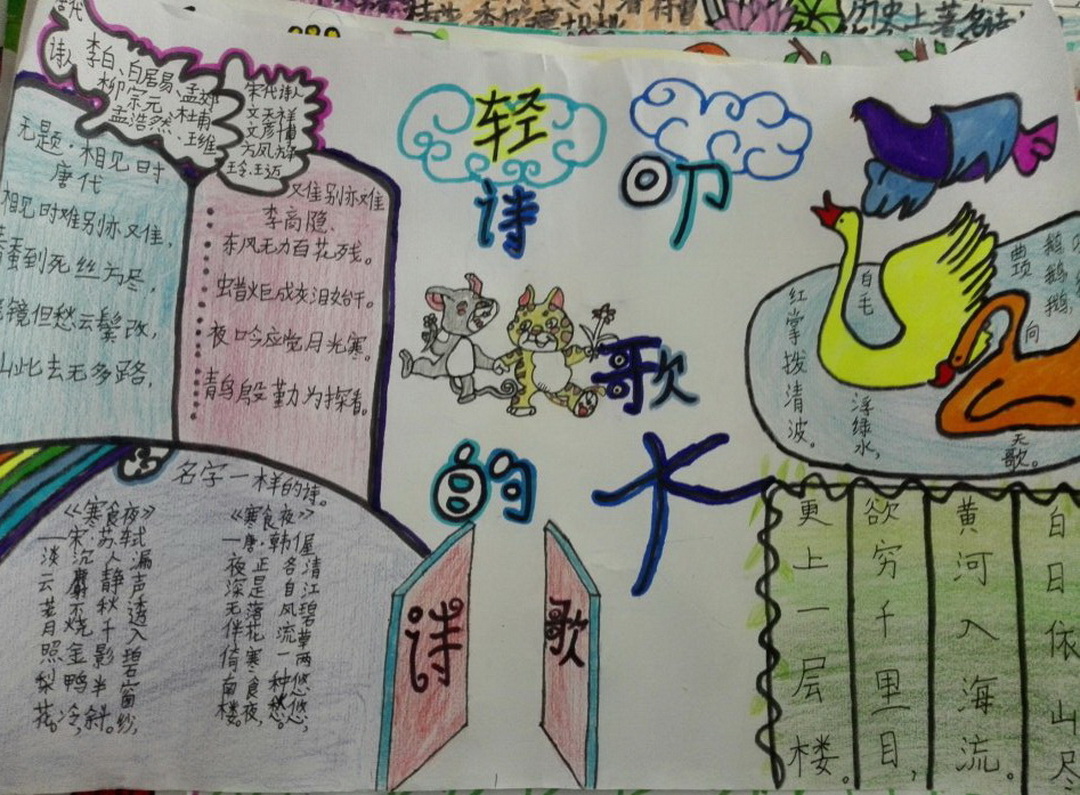 历史上著名诗
唐代
诗人
李白、白居易、
柳宗元、孟郊
孟浩然、杜甫
王维
宋代诗人
文天祥
文彦博
方风辉
王令、王迈
轻
叩
诗
歌
的
大
诗
歌
无题·相见时
唐代
相见时难别亦难,
蚕到死丝方尽,
镜但愁云鬓改,
山此去无多路,
难别亦难
李商隐、
东风无力百花残。
蜡炬成灰泪始干。
夜吟应觉月光寒。
青鸟殷勤为探看。
名字一样的诗。
《寒食夜》
宋·苏轼
漏声透入碧窗纱,
人静秋千影半斜。
沉麝不烧金鸭冷,
淡云若月照梨花。
《寒食夜》
唐·韩偓
清江碧草两悠悠,
各自风流一种愁。
正是落花寒食夜,
夜深无伴倚南楼。
鹅鹅鹅,
曲项
向
天歌。
白毛
浮绿水,
红掌拨清波。
白日依山尽
黄河入海流。
欲穷千里目,
更上一层楼。